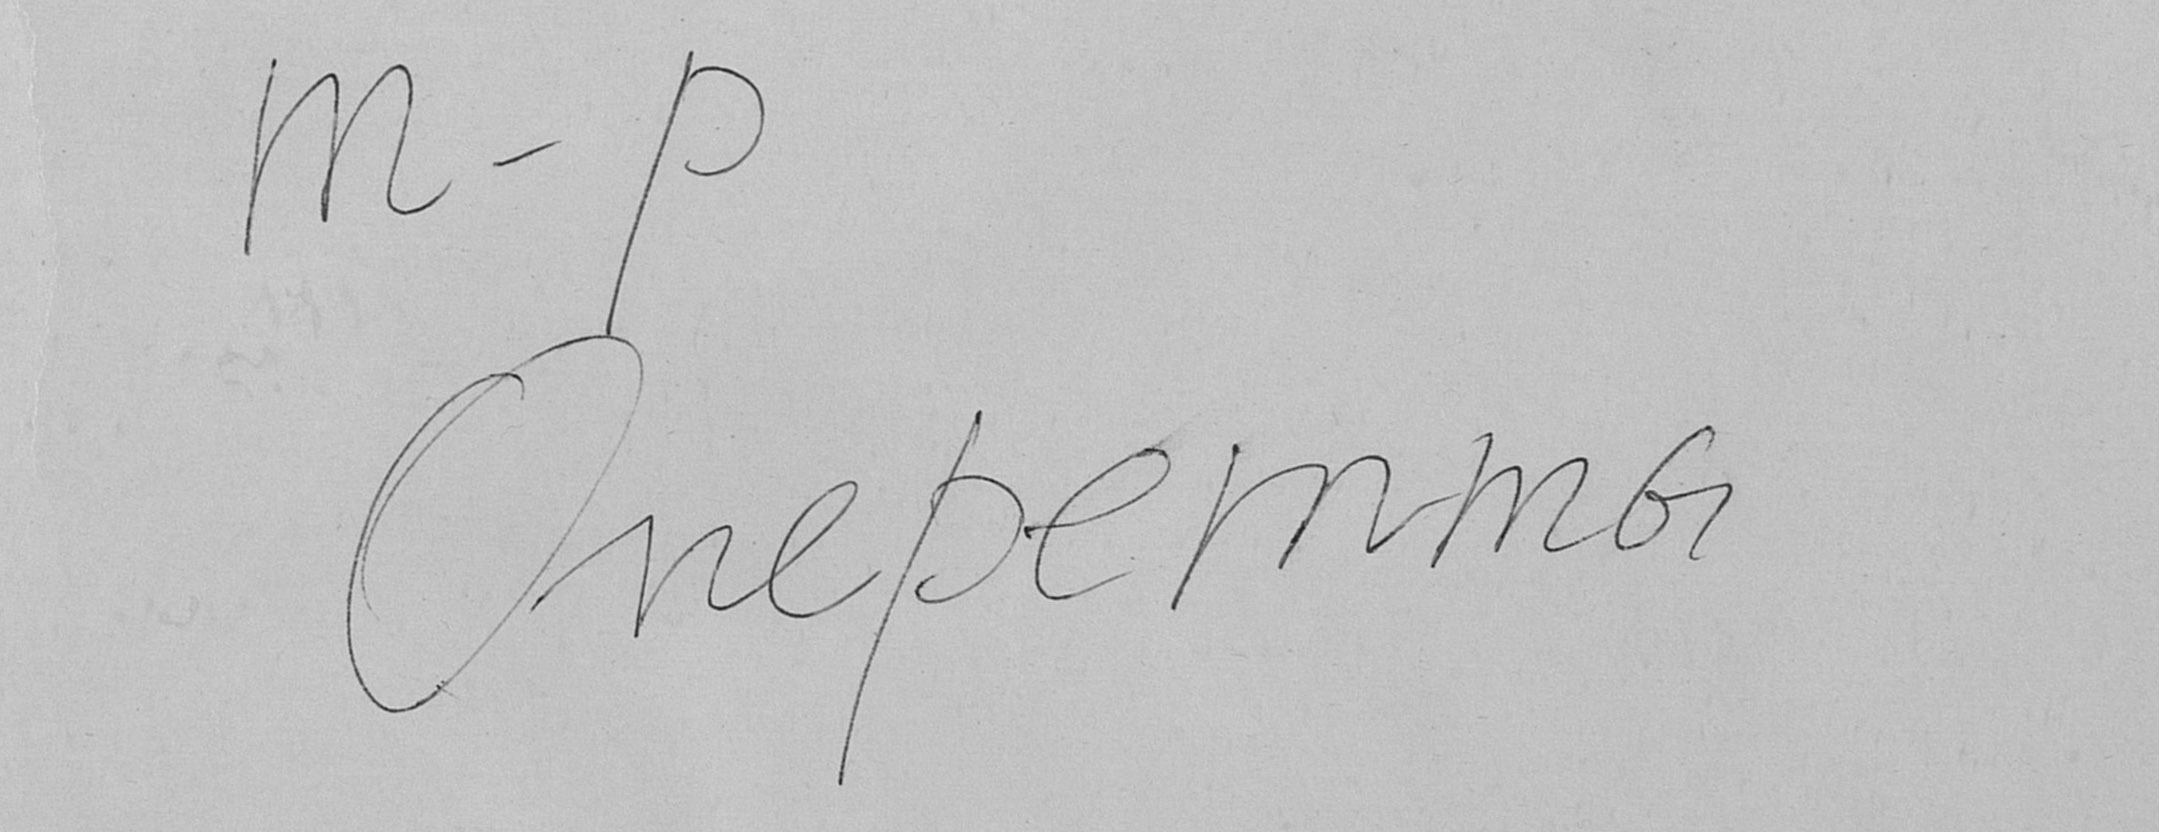 т-р
Оперетты